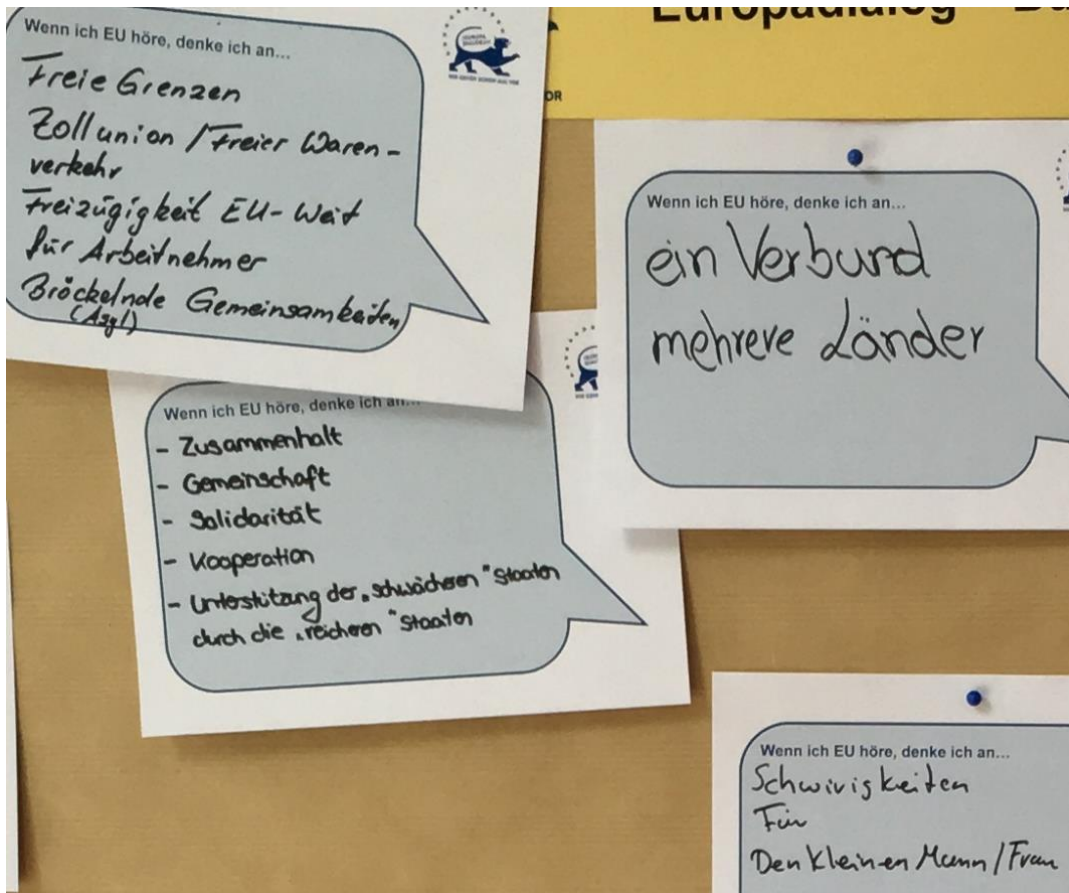 Europadialog
OR
Wenn ich EU höre, denke ich an...
Freie Grenzen
Zollunion / Freier Waren-
verkehr
Freizügigkeit EU-Weit
für Arbeitnehmer
Bröckelnde Gemeinsamkeiten
(Asyl)
Wenn ich EU höre, denke ich an...
ein Verbund
mehrere Länder
Wenn ich EU höre, denke ich an...
- Zusammenhalt
- Gemeinschaft
- Solidarität
- Kooperation
- Unterstützung der „schwächeren" Staaten
durch die „reicheren" Staaten
Wenn ich EU höre, denke ich an...
Schwirigkeiten
Für
Den kleinen Mann / Frau